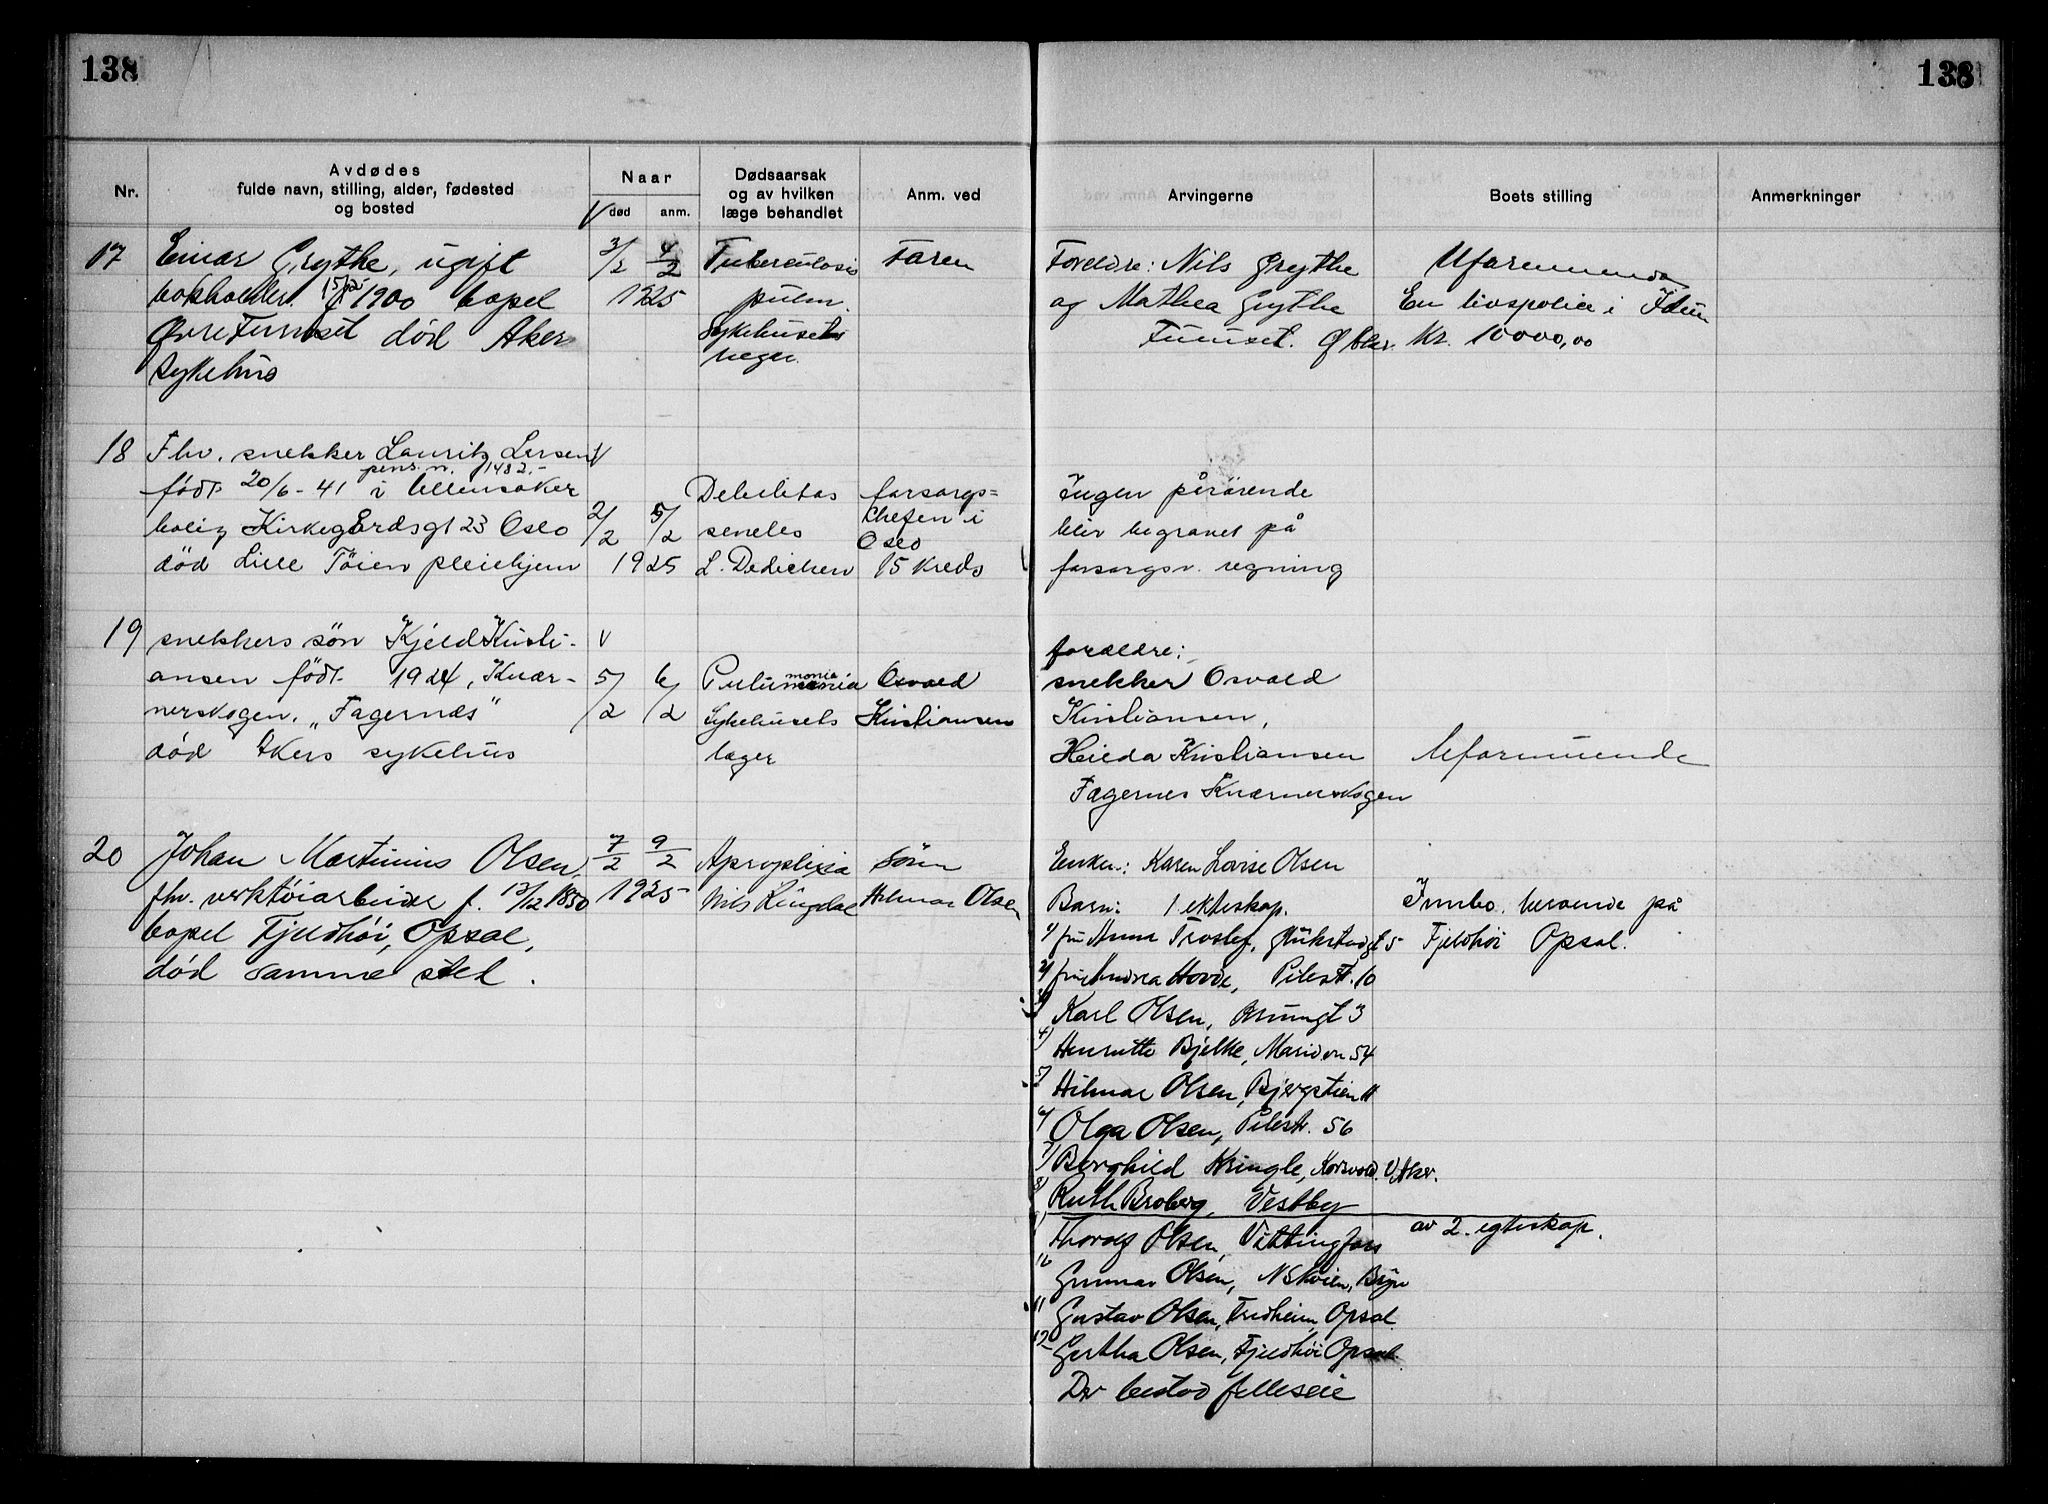 138
138
Nr.
Avdødes
fulde navn, stilling, alder, fødested
og bosted
Naar
død
anm.
Dødsaarsak
og av hvilken
læge behandlet
Anm. ved
Arvingerne
Boets stilling
Anmerkninger
17
Einar Grythe, ugift
bokholder 1900 bopel
Øvre Furuset død Aker
sykehus
3/2 4/2
1925
Tuberculosis
pulm.
Sykehusets
Faren
Foreldre: Nils Grythe
og Mathea Grythe
Furuset. Ø Aker.
Uformuende
En livspolice i Idun
Kr. 10000,00
18
Fhv. snekker Lauritz Larsen
pens. n. 1482.-
født 20/6-41 i Ullensaker
bolig Kirkegårdsgt 23 Oslo
død Lille Töien pleiehjem
2/2 5/2
1925
Debilitas
seneles
L. Dedichen
forsorgs=
chefen i
Oslo
15 kreds
Ingen pårörende
blir begravet på
forsorgsv. regning
19
snekkers sön Kjeld Kristi-
ansen födt 1924, Kvær-
nerskogen. „Fagernes"
död Akers sykehus
5/2 6/2
monia
Sykehusets
læger
Osvald
Kristiansen
forældre:
snekker Osvald
Kristiansen,
Hilda Kristiansen
Fagernes Kværnerskogen
Uformuende
20
Johan Martinius Olsen,
fhv. verktøiarbeider f. 13/12 1850
bopel Fjeldhöi, Opsal,
död samme sted.
7/2 9/2
1925
Aproplexia
Nils Ringdal
Sönn
Hilmar Olsen
Enken: Karen Lovise Olsen
Barn: 1 ekteskap.
1/ fru Anna
2/ fru Andrea Hovde, Pilestr. 10
3/ Karl Olsen, Brungt 3
4/ Henriette Bjelke, Maridvn 54
5/ Hilmar Olsen, Bjergstien 11
6/ Olga Olsen, Pilestr. 56
7/ Borghild Kringle, V. Aker.
8/ Ruth Broberg, Vestby
Thoralf Olsen, Vittingfoss
10 Gunnar Olsen, N Skøien, Bryn
11 Gustav Olsen, Fredheim, Opsal.
12 Gertha Olsen, Fjeldhöi Opsal.
Der bestod felleseie
Innbo. beroende på
Fjeldhöi Opsal.
av 2. egteskap.